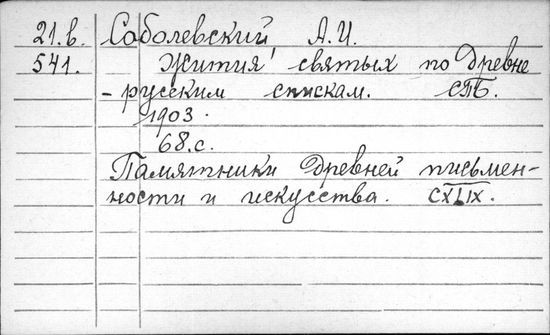 21.в. Соболевский, А.И.
541. Жития святых по древне
-русским спискам. СПБ.
1903.
68.с.
Памятники древней письмен-
ности и искусства. CXLIX.